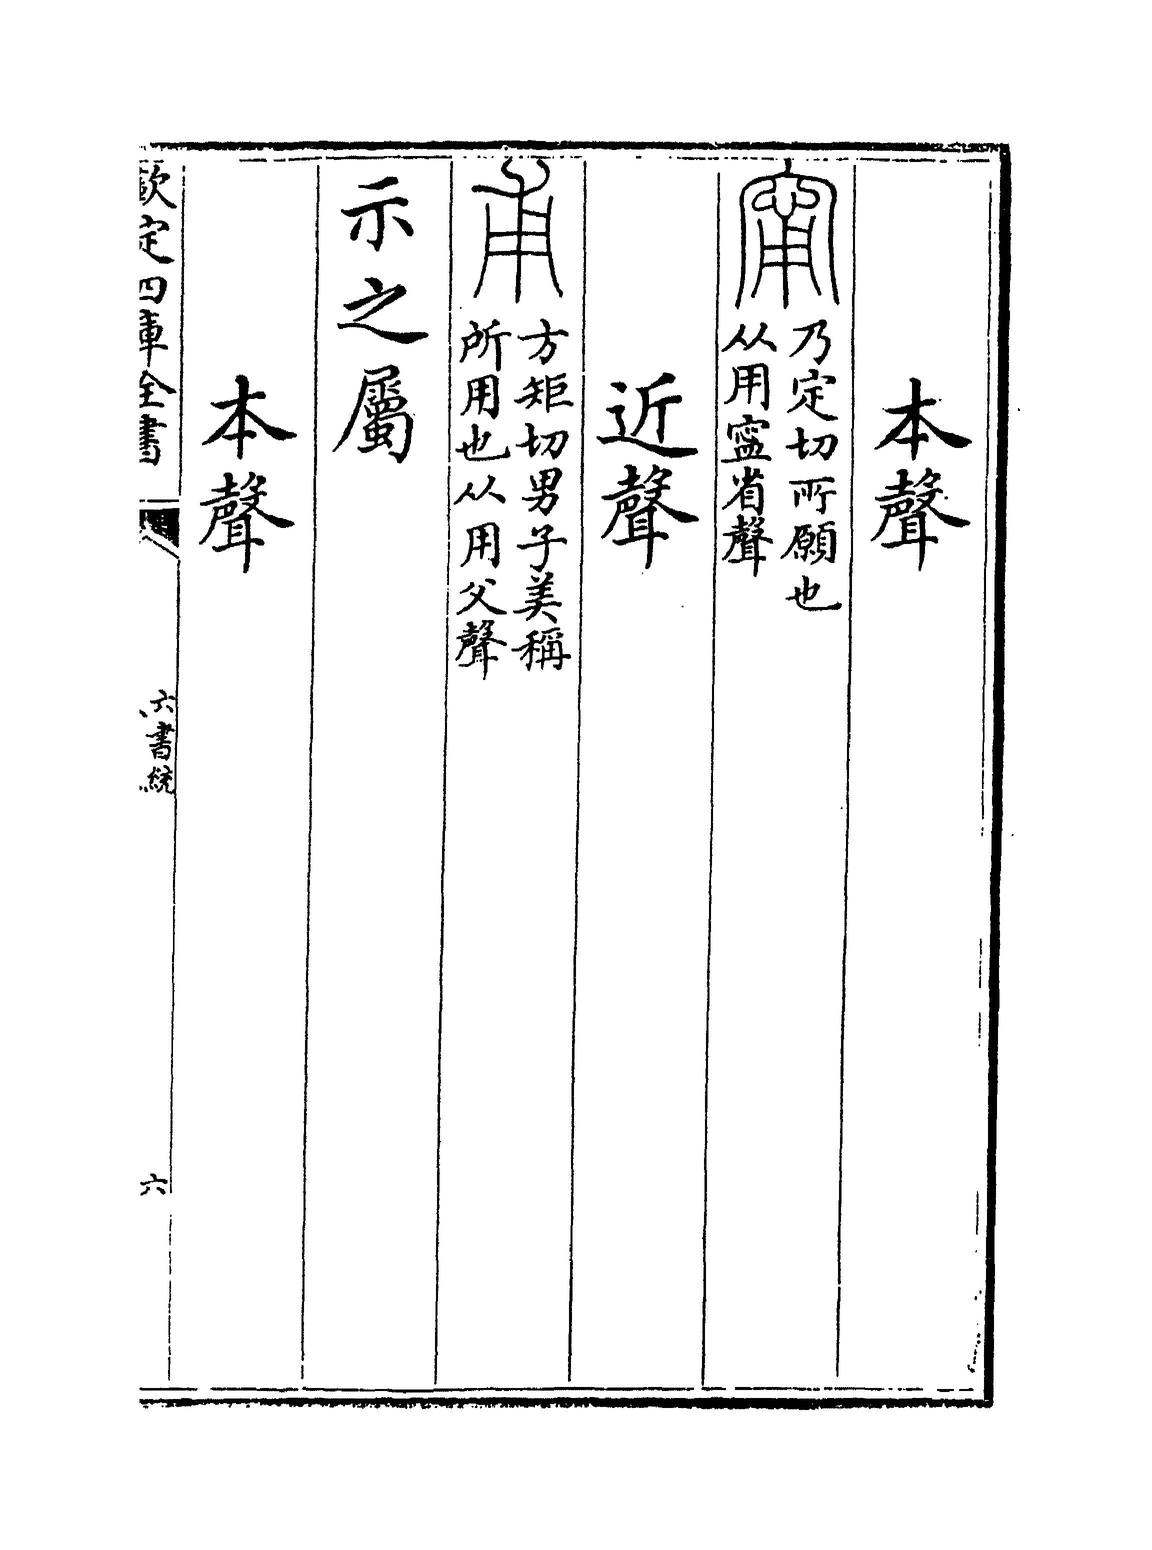 本聲
甯乃定切所願也
从用寍省聲
近聲
甫方矩切男子美稱
所用也从用父聲
示之屬
本聲
欽定四庫全書
六書統
六